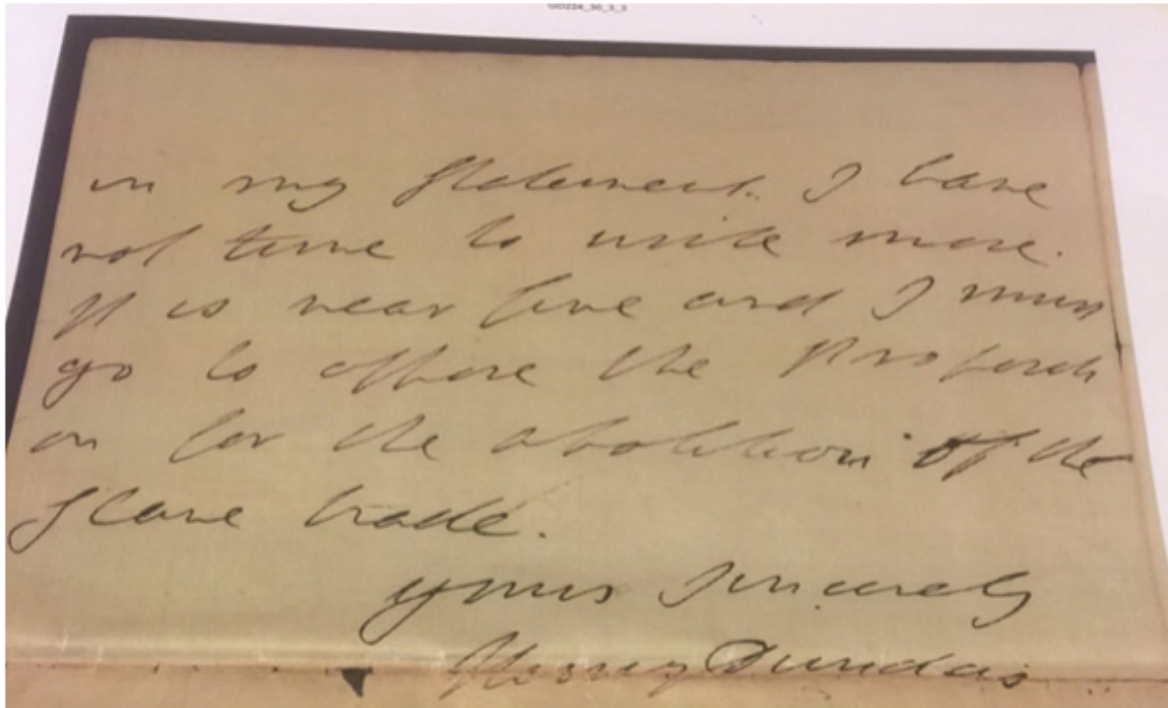 GD224_30_3_3
in my statement. I have
not time to write more.
It is near five and I must
go to oppose the Propositi
on for the abolition of the
slave trade.
yours sincerely
Henry Dundas